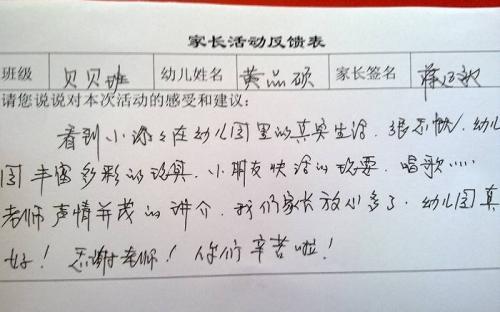 家长活动反馈表
班级 贝贝班 幼儿姓名 黄品硕 家长签名
请您说说对本次活动的感受和建议：
看到小孩々在幼儿园里的真实生活，很愉快，幼儿
园丰富多彩的玩具，小朋友快活的玩耍，唱歌……
老师声情并茂的讲介，我们家长放心多了，幼儿园真
好！感谢老师！你们辛苦啦！